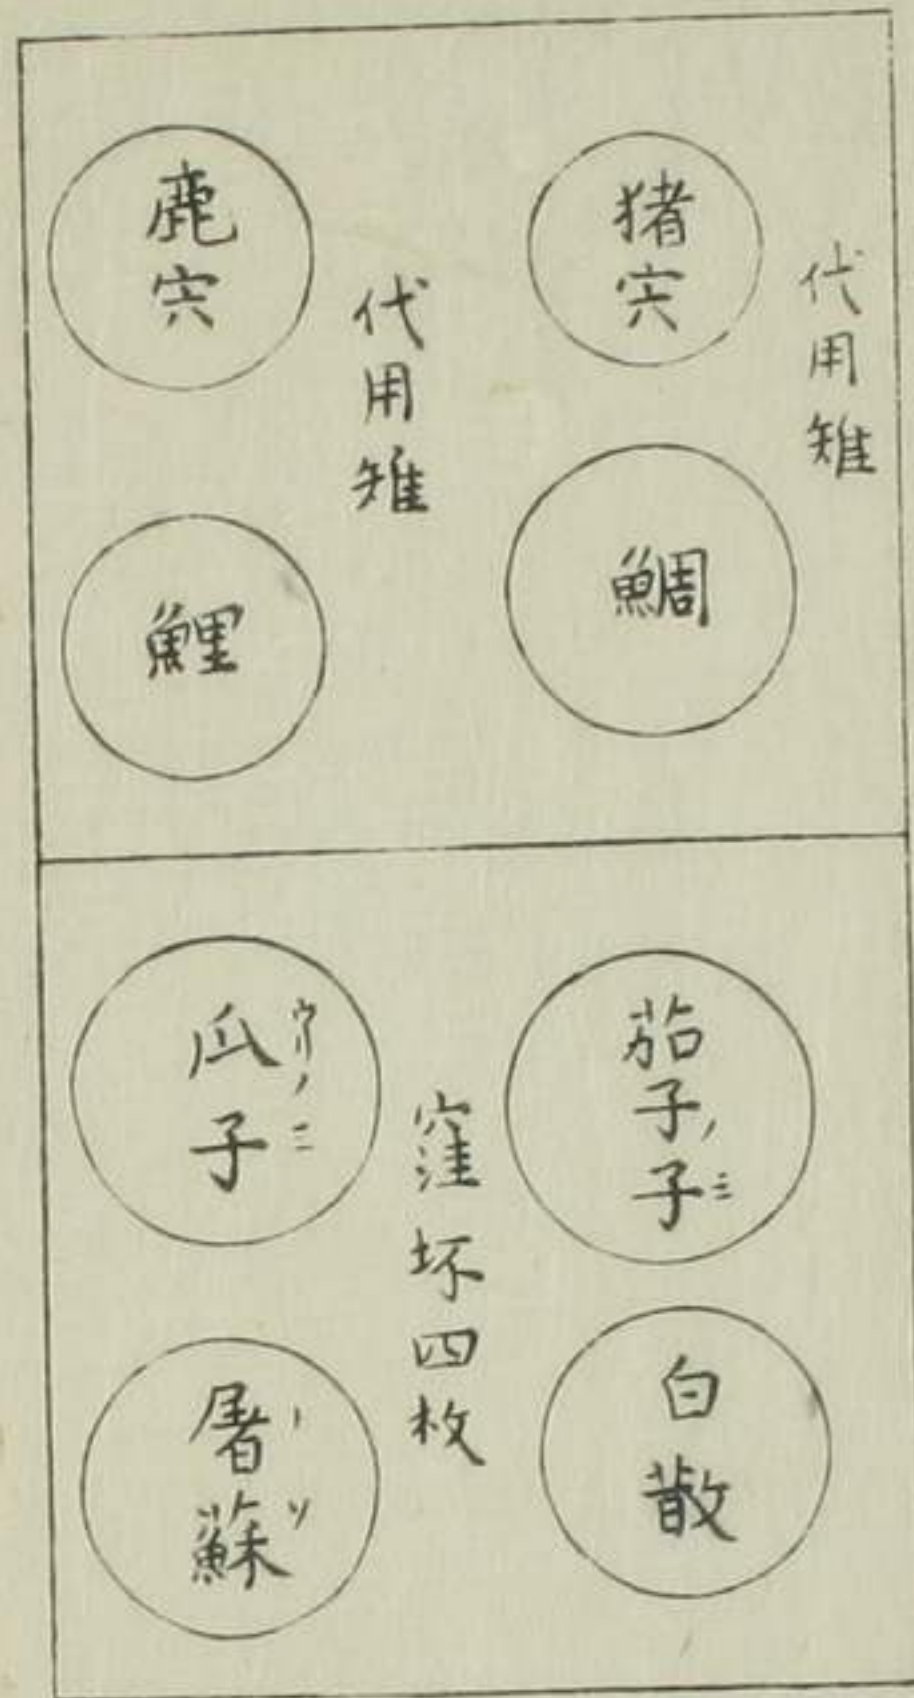 代用雉
猪宍
鯛
代用雉
鹿宍
鯉
茄子ノ子ミ
白散
窪坏四枚
瓜子
ウリノミ
屠蘇
トソ